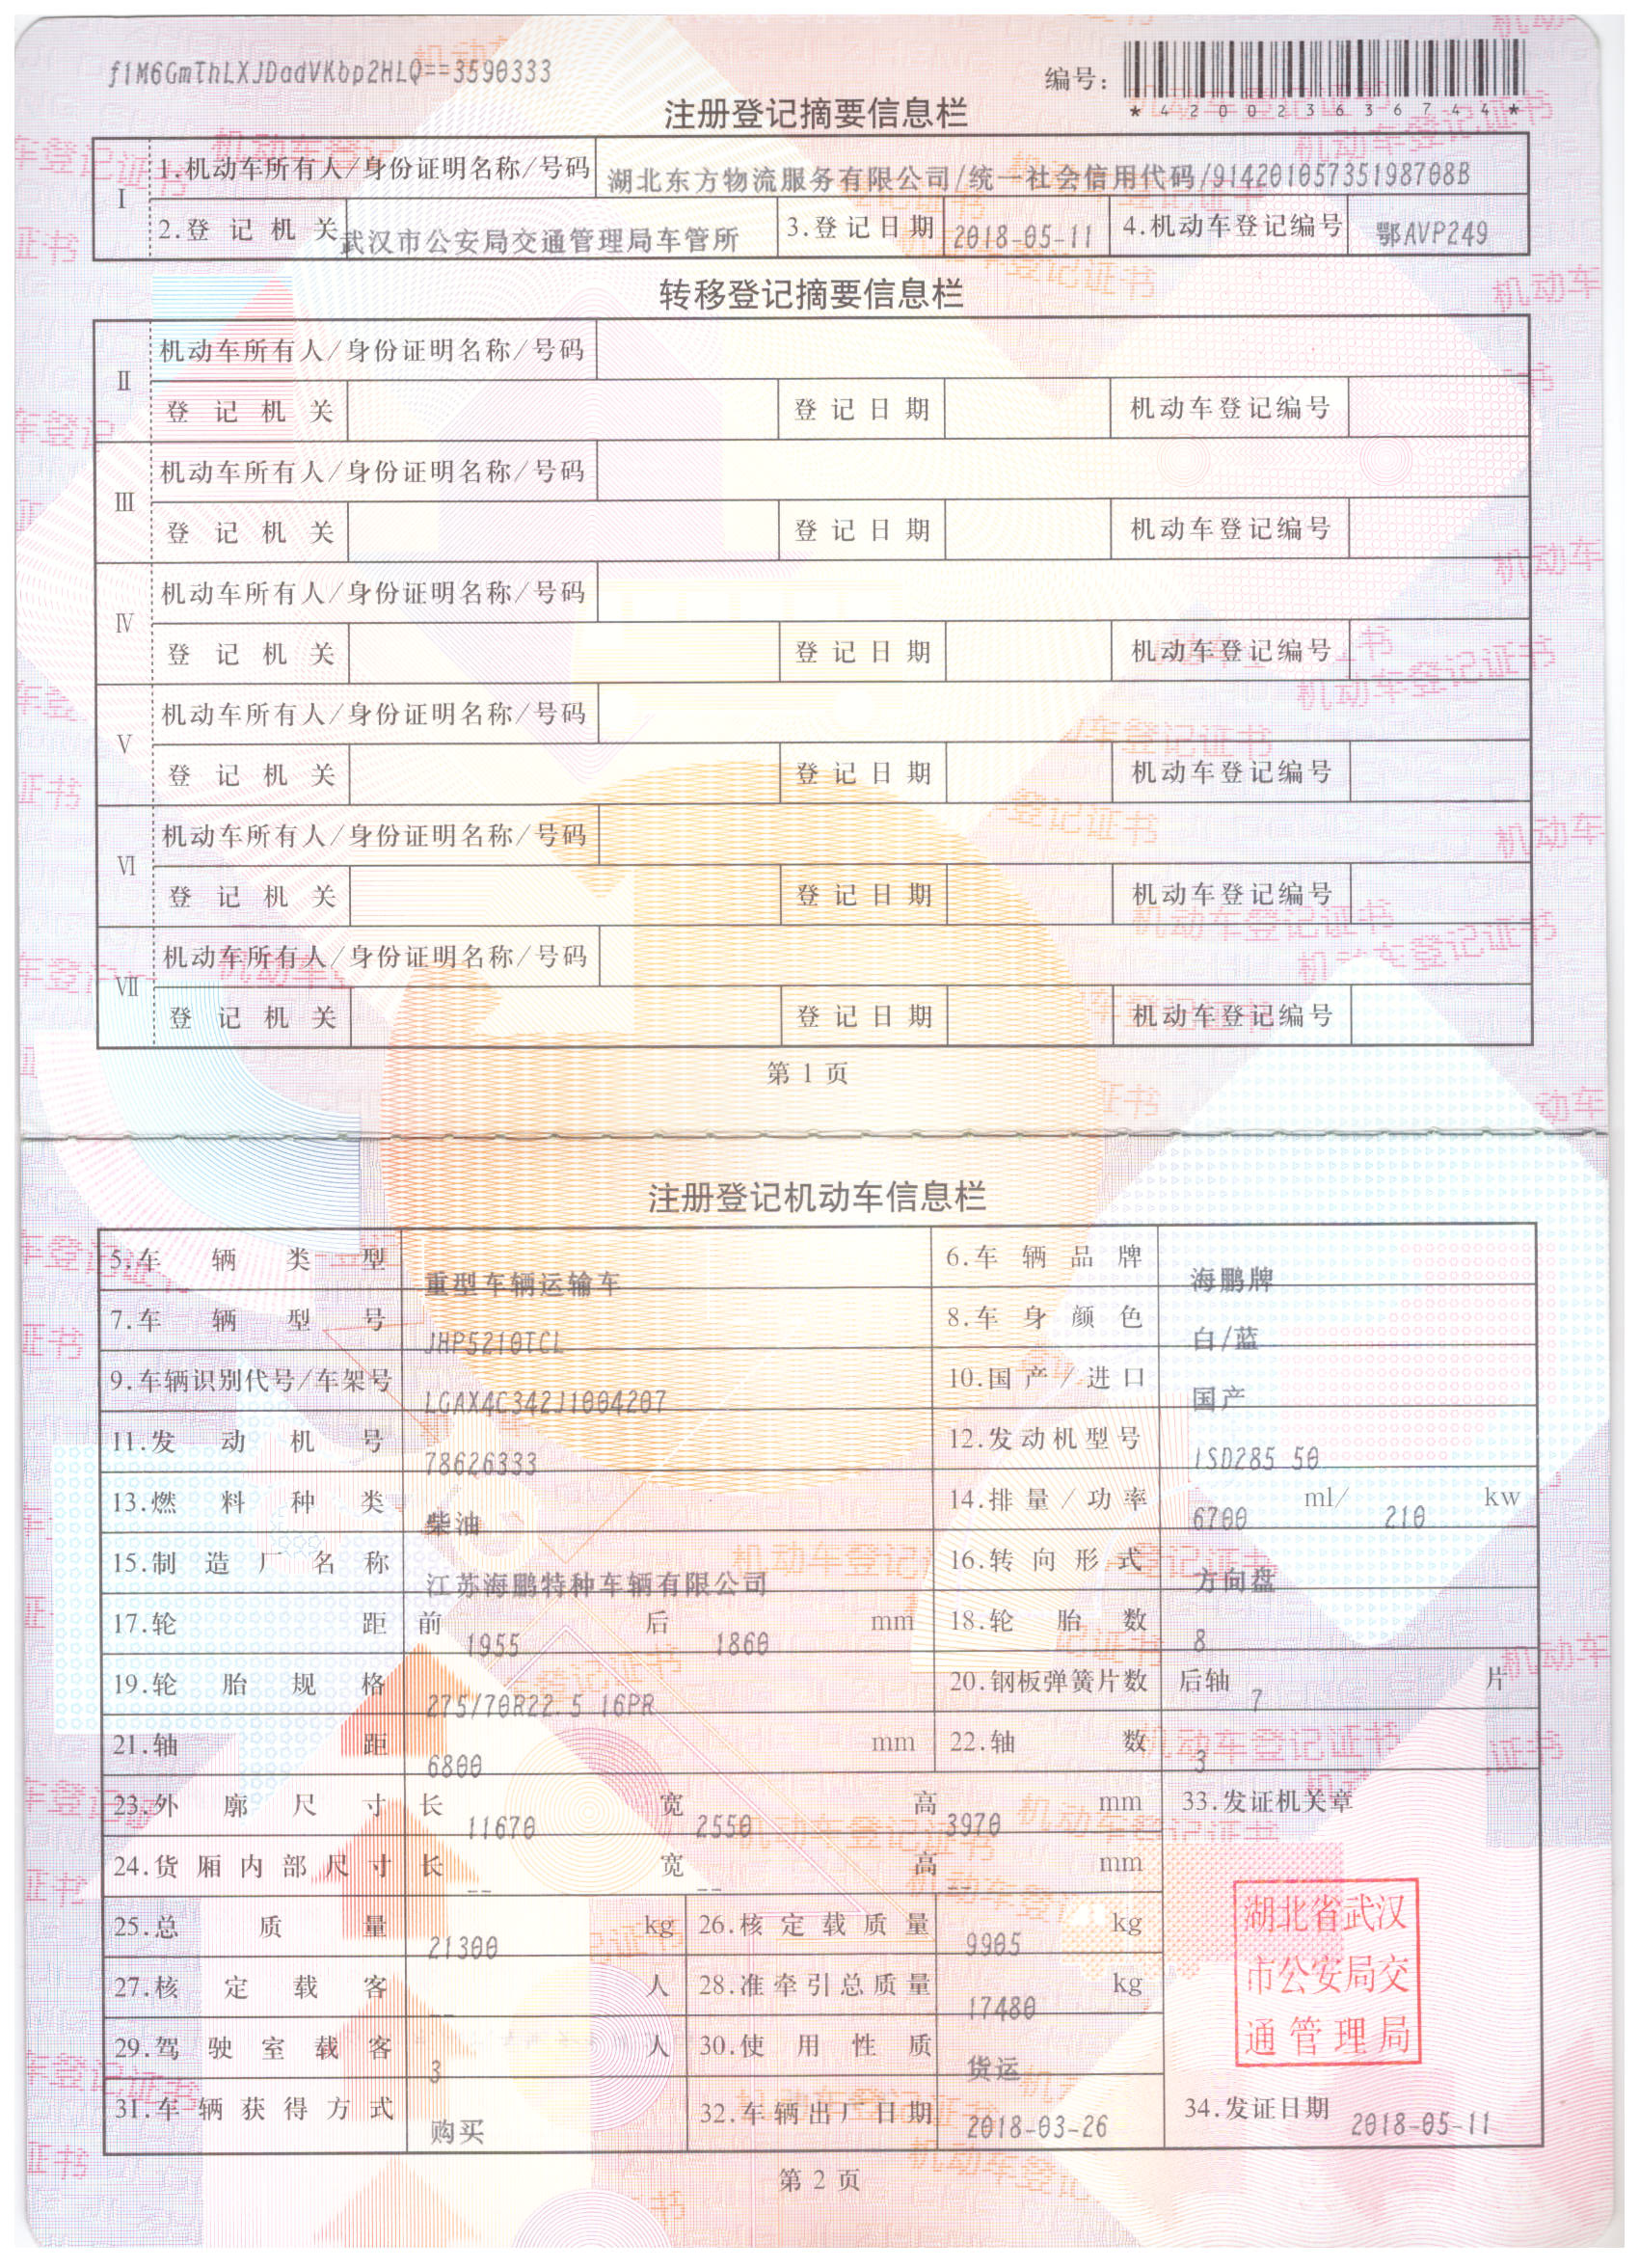 f1M6GmThLXJDadVKbp2HLQ==3590333
编号:
*420023636744*
注册登记摘要信息栏
I 1.机动车所有人/身份证明名称/号码 湖北东方物流服务有限公司/统一社会信用代码/91420105735198708B
2.登记机关 武汉市公安局交通管理局车管所 3.登记日期 2018-05-11 4.机动车登记编号 鄂AVP249
转移登记摘要信息栏
II 机动车所有人/身份证明名称/号码
登记机关 登记日期 机动车登记编号
III 机动车所有人/身份证明名称/号码
登记机关 登记日期 机动车登记编号
IV 机动车所有人/身份证明名称/号码
登记机关 登记日期 机动车登记编号
V 机动车所有人/身份证明名称/号码
登记机关 登记日期 机动车登记编号
VI 机动车所有人/身份证明名称/号码
登记机关 登记日期 机动车登记编号
VII 机动车所有人/身份证明名称/号码
登记机关 登记日期 机动车登记编号
第 1 页
注册登记机动车信息栏
5.车辆类型 重型车辆运输车 6.车辆品牌 海鹏牌
7.车辆型号 JHP5210TCL 8.车身颜色 白/蓝
9.车辆识别代号/车架号 LGAX4C342J1004207 10.国产/进口 国产
11.发动机号 78626333 12.发动机型号 ISD285 50
13.燃料种类 柴油 14.排量/功率 6700 ml/ 210 kw
15.制造厂名称 江苏海鹏特种车辆有限公司 16.转向形式 方向盘
17.轮距 前 1955 后 1860 mm 18.轮胎数 8
19.轮胎规格 275/70R22.5 16PR 20.钢板弹簧片数 后轴 7 片
21.轴距 6800 mm 22.轴数 3
23.外廓尺寸 长 11670 宽 2550 高 3970 mm 33.发证机关章
24.货厢内部尺寸 长 -- 宽 -- 高 -- mm
25.总质量 21300 kg 26.核定载质量 9905 kg
27.核定载客 -- 人 28.准牵引总质量 17480 kg
29.驾驶室载客 3 人 30.使用性质 货运
31.车辆获得方式 购买 32.车辆出厂日期 2018-03-26 34.发证日期 2018-05-11
湖北省武汉
市公安局交
通管理局
第 2 页